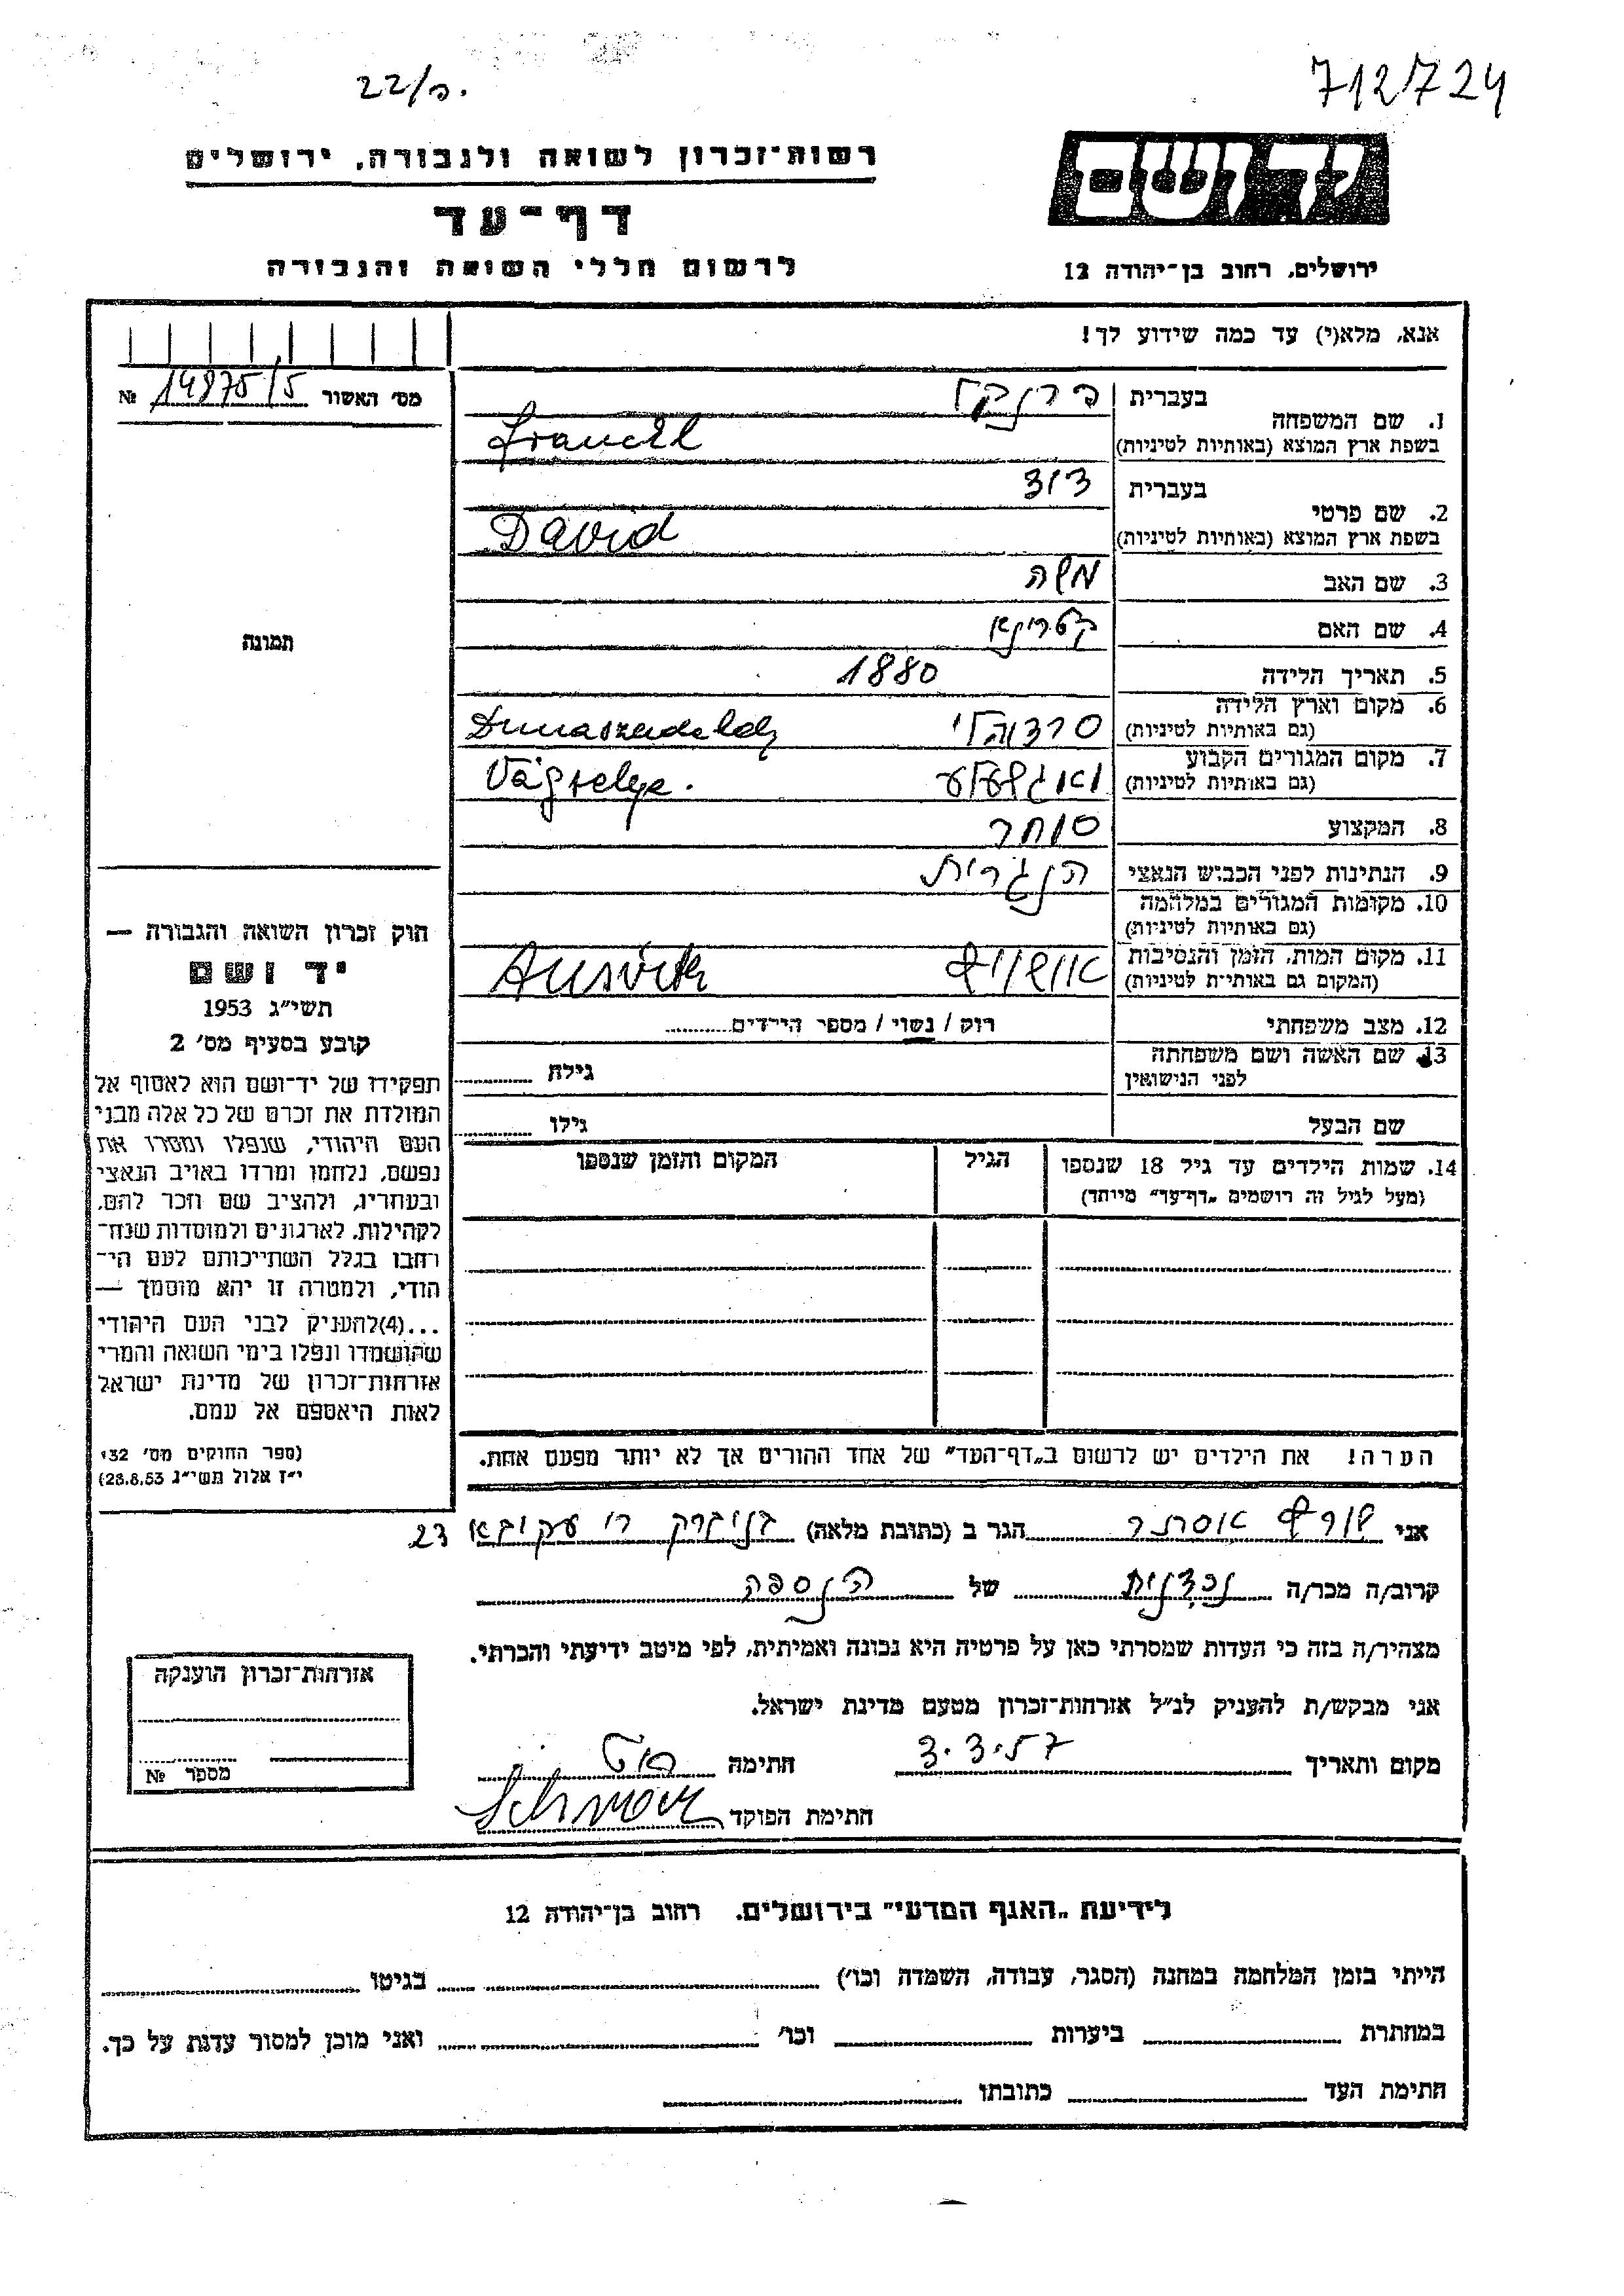 22/פ.
712/724
רשות־זכרון לשואה ולגבורה, ירושלים
דף־עד
לרשום חללי השואה והגבורה
יד ושם
ירושלים, רחוב בן־יהודה 12
אנא, מלא(י) עד כמה שידוע לך!
מס׳ האשור 14875/5 №
1. שם המשפחה בעברית פרנקל
בשפת ארץ המוצא (באותיות לטיניות) Franckl
2. שם פרטי בעברית דוד
בשפת ארץ המוצא (באותיות לטיניות) David
3. שם האב משה
4. שם האם קטרינא
5. תאריך הלידה 1880
6. מקום וארץ הלידה
(גם באותיות לטיניות) סרדהלי Dunaszerdahely
7. מקום המגורים הקבוע
(גם באותיות לטיניות) ואגשעלע Vágselye.
8. המקצוע סוחר
9. הנתינות לפני הכבוש הנאצי הנגרית
10. מקומות המגורים במלחמה
(גם באותיות לטיניות)
11. מקום המות, הזמן והנסיבות
(המקום גם באותיות לטיניות) אושוויץ Ausvitz
12. מצב משפחתי רוק / נשוי / מספר הילדים
13. שם האשה ושם משפחתה
לפני הנישואין גילה
שם הבעל גילו
14. שמות הילדים עד גיל 18 שנספו
(מעל לגיל זה רושמים „דף־עד״ מיוחד)
הגיל
המקום והזמן שנספו
הערה! את הילדים יש לרשום ב„דף־העד״ של אחד ההורים אך לא יותר מפעם אחת.
תמונה
חוק זכרון השואה והגבורה —
יד ושם
תשי״ג 1953
קובע בסעיף מס׳ 2
תפקידו של יד־ושם הוא לאסוף אל
המולדת את זכרם של כל אלה מבני
העם היהודי, שנפלו ומסרו את
נפשם, נלחמו ומרדו באויב הנאצי
ובעוזריו, ולהציב שם וזכר להם,
לקהילות, לארגונים ולמוסדות שנח־
רבו בגלל השתייכותם לעם הי־
הודי, ולמטרה זו יהא מוסמך —
...(4) להעניק לבני העם היהודי
שהושמדו ונפלו בימי השואה והמרי
אזרחות־זכרון של מדינת ישראל
לאות היאספם אל עמם.
(ספר החוקים מס׳ 132,
י״ז אלול תשי״ג 28.8.53)
אני שורץ אסתר הגר ב (כתובת מלאה) בני ברק ר׳ עקיבא 23
קרוב/ה מכר/ה נכדנית של הנספה
מצהיר/ה בזה כי העדות שמסרתי כאן על פרטיה היא נכונה ואמיתית, לפי מיטב ידיעתי והכרתי.
אני מבקש/ת להעניק לנ״ל אזרחות־זכרון מטעם מדינת ישראל.
מקום ותאריך 3.3.57 חתימה
חתימת הפוקד
אזרחות־זכרון הוענקה
מספר №
לידיעת „האגף המדעי״ בירושלים, רחוב בן־יהודה 12
הייתי בזמן המלחמה במחנה (הסגר, עבודה, השמדה וכו׳) בגיטו
במחתרת ביערות וכו׳ ואני מוכן למסור עדות על כך.
חתימת העד כתובתו